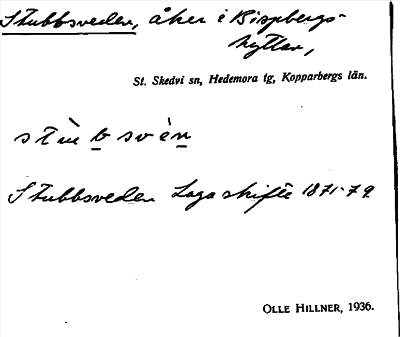 Stubbsveden, åker i Bispbergs-
hyttan,
St. Skedvi sn, Hedemora tg, Kopparbergs län.
Stubbsveden Laga skifte 1871-79
OLLE HILLNER, 1936.